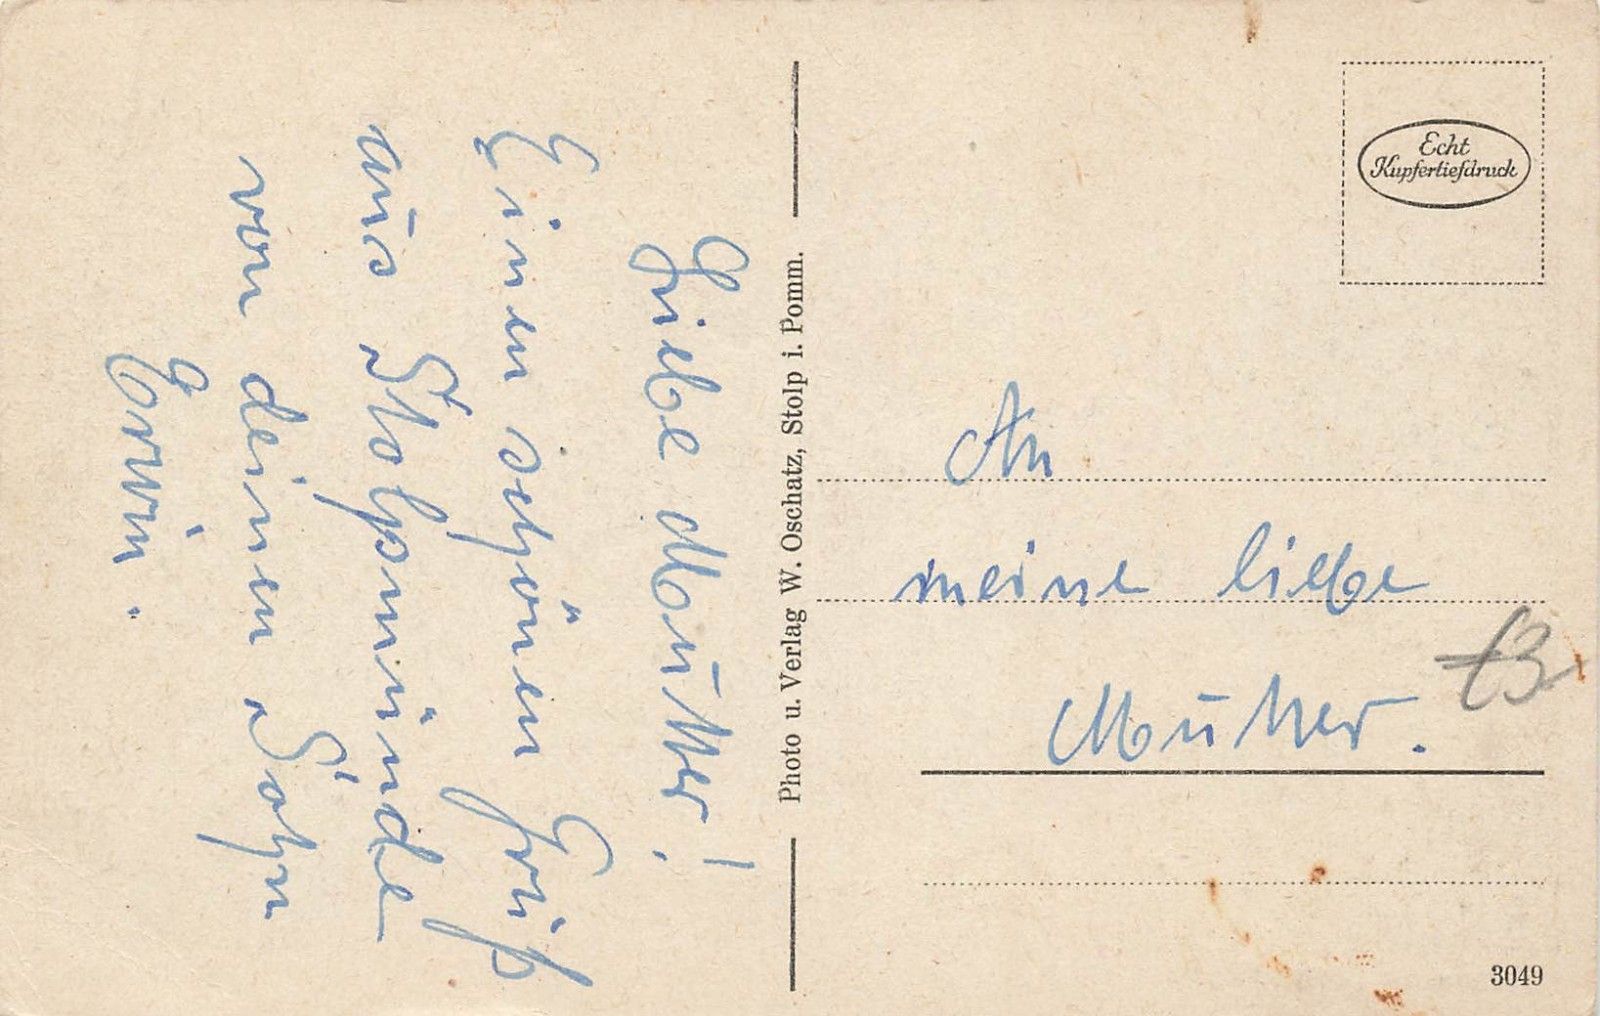 Liebe Mutter!
Einen schönen Gruß
aus Stolpmünde
von deinen Sohn
Erwin.
Photo u. Verlag W. Oschatz, Stolp i. Pomm.
Echt
Kupfertiefdruck
An
meine liebe
Mutter.
3049